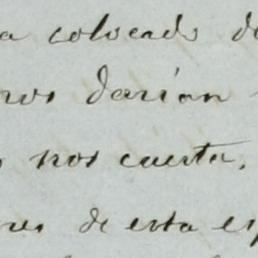 a colocado d
nos darian
nos cuesta,
res de esta es